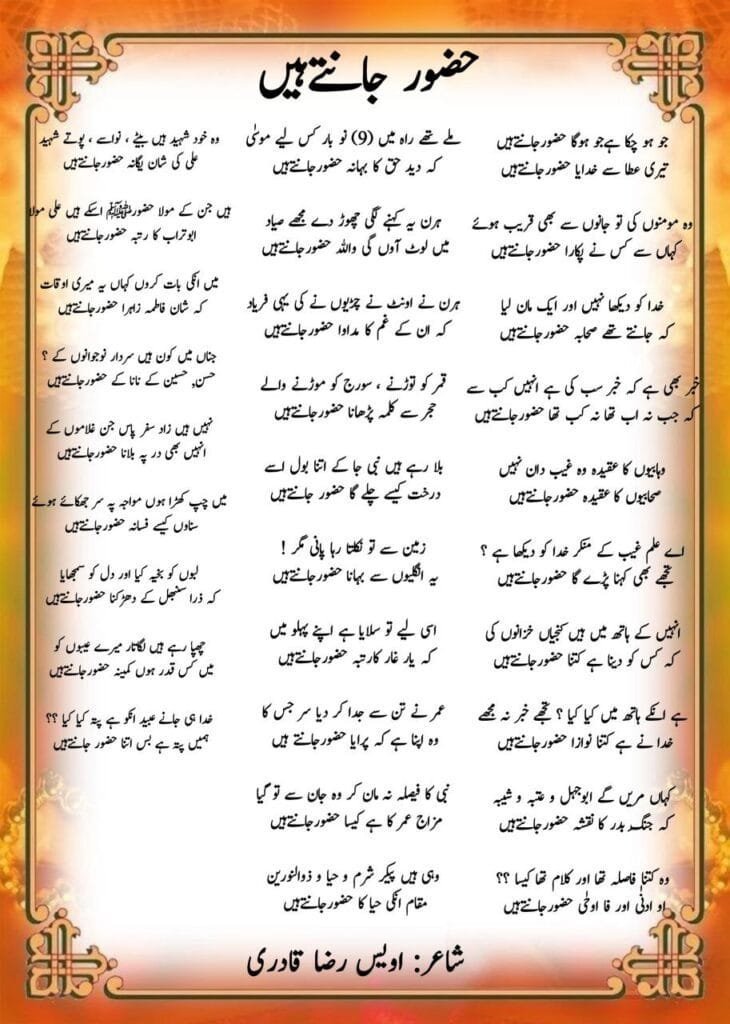 حضور جانتے ہیں
جو ہو چکا ہے جو ہوگا حضور جانتے ہیں
تیری عطا سے خدایا حضور جانتے ہیں
وہ مومنوں کی تو جانوں سے بھی قریب ہوئے
کہاں سے کس نے پکارا حضور جانتے ہیں
خدا کو دیکھا نہیں اور ایک مان لیا
کہ جانتے تھے صحابہ حضور جانتے ہیں
خبر بھی ہے کہ خبر سب کی ہے انہیں کب سے
کہ جب نہ اب تھا نہ کب تھا حضور جانتے ہیں
وہابیوں کا عقیدہ وہ غیب دان نہیں
صحابیوں کا عقیدہ حضور جانتے ہیں
اے علم غیب کے منکر خدا کو دیکھا ہے ؟
تجھے بھی کہنا پڑے گا حضور جانتے ہیں
انہیں کے ہاتھ میں ہیں کنجیاں خزانوں کی
کہ کس کو دینا ہے کتنا حضور جانتے ہیں
ہے انکے ہاتھ میں کیا کیا ؟ تجھے خبر نہ مجھے
خدا نے ہے کتنا نوازا حضور جانتے ہیں
کہاں مریں گے ابوجہل و عتبہ و شیبہ
کہ جنگ بدر کا نقشہ حضور جانتے ہیں
وہ کتنا فاصلہ تھا اور کلام تھا کیسا ؟؟
او ادنیٰ اور فا اوحیٰ حضور جانتے ہیں
ملے تھے راہ میں (9) نو بار کس لیے موسیٰ
کہ دید حق کا بہانہ حضور جانتے ہیں
ہرن یہ کہنے لگی چھوڑ دے مجھے صیاد
میں لوٹ آوں گی واللہ حضور جانتے ہیں
ہرن نے اونٹ نے چڑیوں نے کی یہی فریاد
کہ ان کے غم کا مداوا حضور جانتے ہیں
قمر کو توڑنے ، سورج کو موڑنے والے
حجر سے کلمہ پڑھانا حضور جانتے ہیں
بلا رہے ہیں نبی جا کے اتنا بول اسے
درخت کیسے چلے گا حضور جانتے ہیں
زمین سے تو نکلتا رہا پانی مگر !
یہ انگلیوں سے بہانا حضور جانتے ہیں
اسی لیے تو سلایا ہے اپنے پہلو میں
کہ یار غار کا رتبہ حضور جانتے ہیں
عمر نے تن سے جدا کر دیا سر جس کا
وہ اپنا ہے کہ پرایا حضور جانتے ہیں
نبی کا فیصلہ نہ مان کر وہ جان سے تو گیا
مزاج عمر کا ہے کیسا حضور جانتے ہیں
وہی ہیں پیکر شرم و حیا و ذوالنورین
مقام انکی حیا کا حضور جانتے ہیں
وہ خود شہید ہیں بیٹے ، نواسے ، پوتے شہید
علی کی شان یگانہ حضور جانتے ہیں
ہیں جن کے مولا حضور ﷺ اسکے ہیں علی مولا
ابوتراب کا رتبہ حضور جانتے ہیں
میں انکی بات کروں کہاں یہ میری اوقات
کہ شان فاطمہ زاہرا حضور جانتے ہیں
جناں میں کون ہیں سردار نوجوانوں کے ؟
حسن، حسین کے نانا کے حضور جانتے ہیں
نہیں ہیں زاد سفر پاس جن غلاموں کے
انہیں بھی در پہ بلانا حضور جانتے ہیں
میں چپ کھڑا ہوں مواجہ پہ سر جھکائے ہوئے
سناوں کیسے فسانہ حضور جانتے ہیں
لبوں کو بخیہ کیا اور دل کو سمجھایا
کہ ذرا سنبھل کے دھڑکنا حضور جانتے ہیں
چھپا رہے ہیں لگاتار میرے عیبوں کو
میں کس قدر ہوں کمینہ حضور جانتے ہیں
خدا ہی جانے عبید انکو ہے پتہ کیا کیا ؟؟
ہمیں پتہ ہے بس اتنا حضور جانتے ہیں
شاعر: اویس رضا قادری